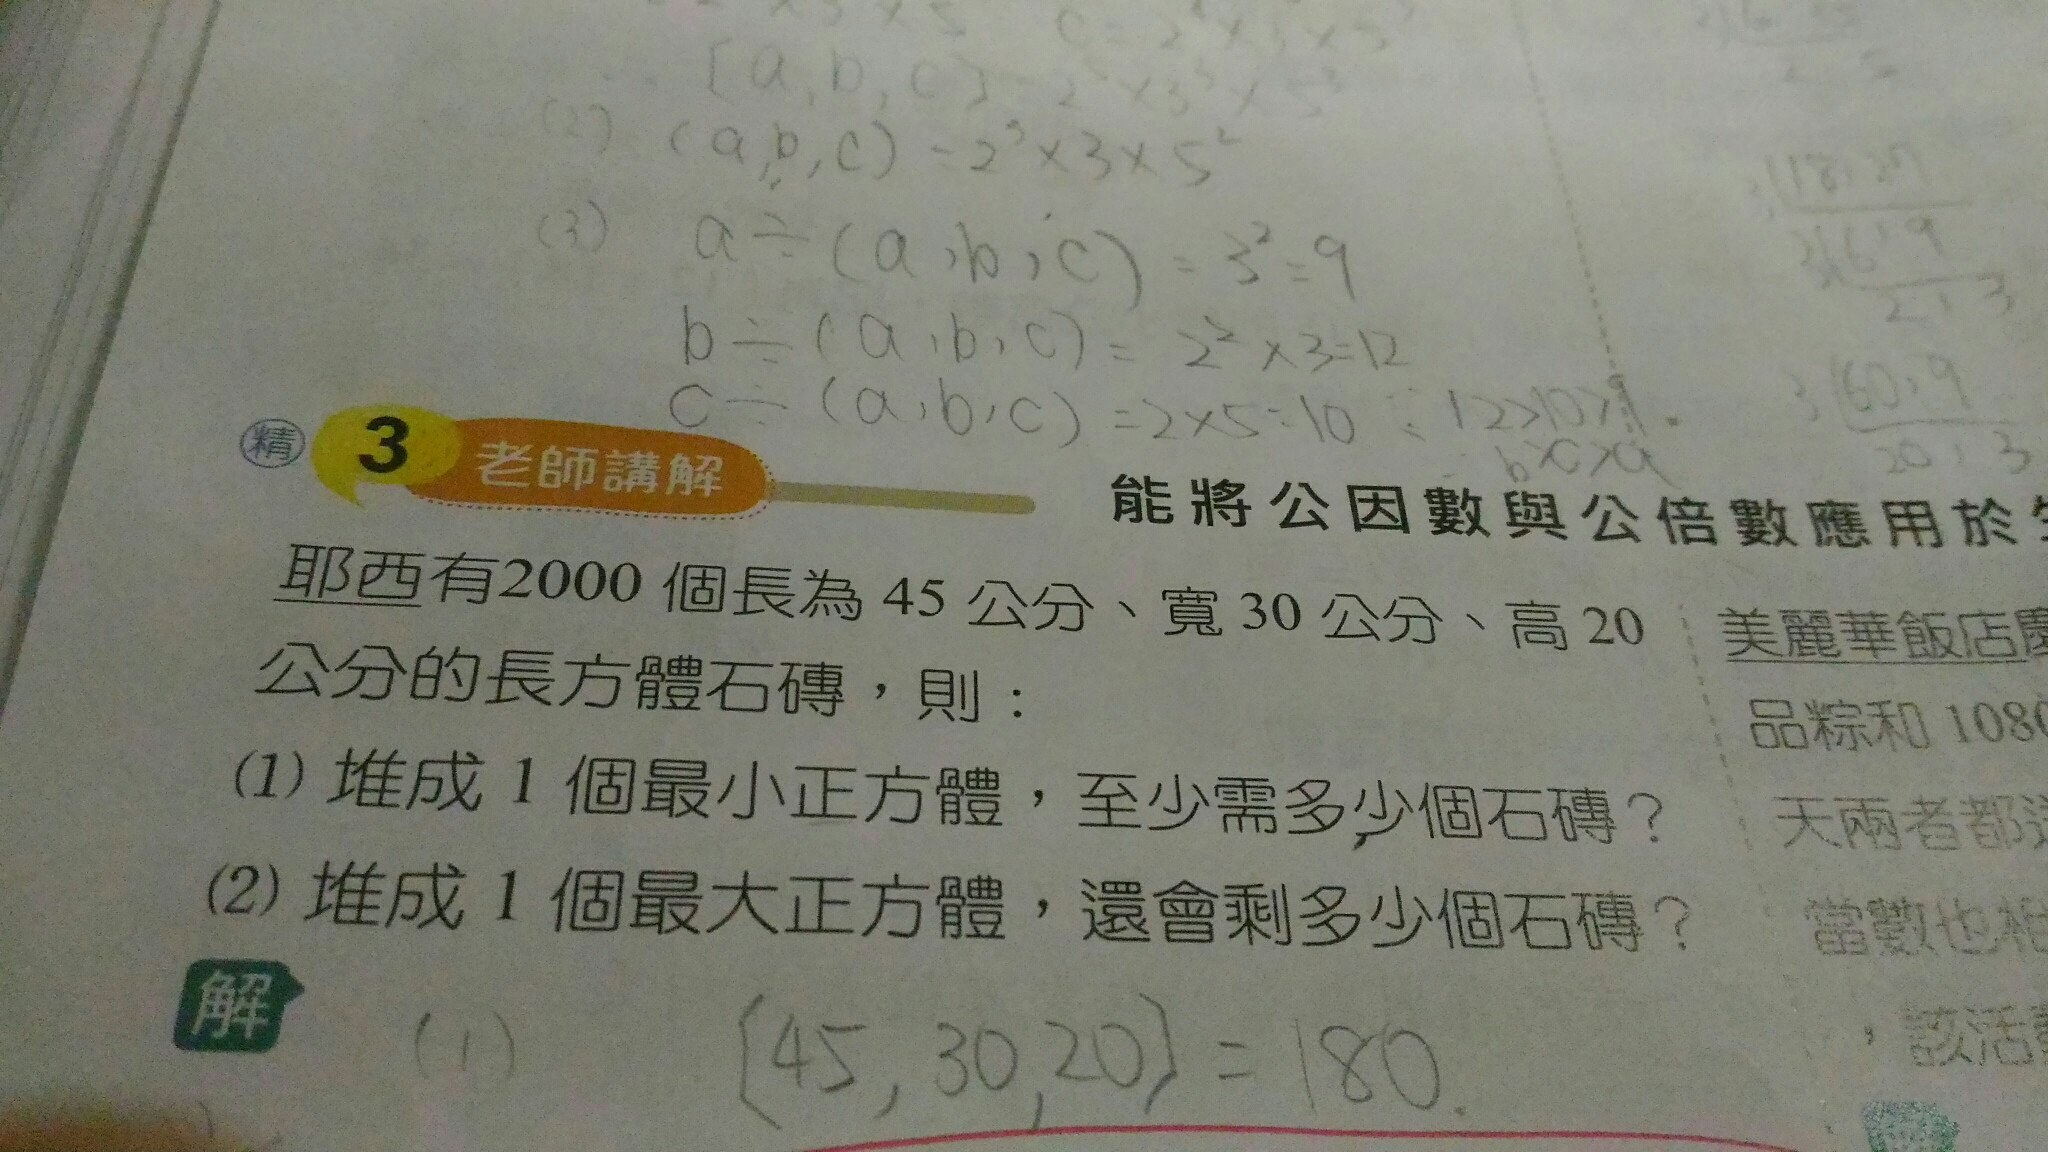 (2) (a,b,c) = 2³×3×5²
(3) a÷(a,b,c) = 3² = 9
b÷(a,b,c) = 2²×3=12
c÷(a,b,c) = 2×5=10 ∴ 12>10>9.
b>c>a
18, 27
3 6, 9
2, 3
3 60, 9
20, 3
精 3 老師講解
能將公因數與公倍數應用於
耶西有2000個長為45公分、寬30公分、高20
公分的長方體石磚,則:
(1) 堆成1個最小正方體,至少需多少個石磚?
(2) 堆成1個最大正方體,還會剩多少個石磚?
解
(1) [45, 30, 20] = 180.
美麗華飯店
品粽和1080
天兩者都
當數也
,該活